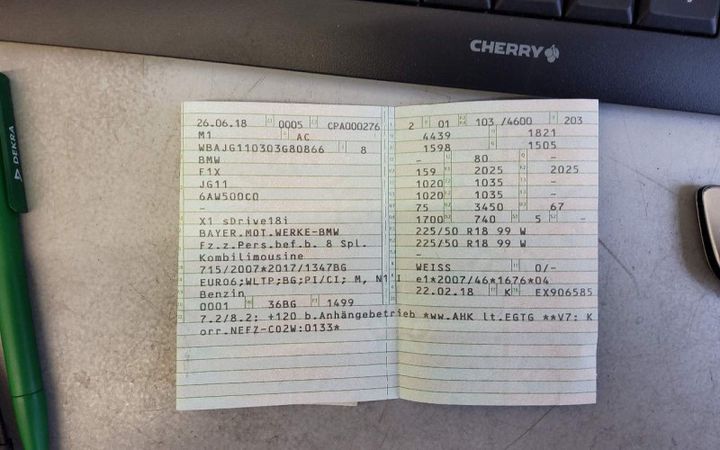 CHERRY
DEKRA
26.06.18 0005 CPA000276
M1 AC
WBAJG110303G80866 8
BMW
F1X
JG11
6AW500C0
-
X1 sDrive18i
BAYER.MOT.WERKE-BMW
Fz.z.Pers.bef.b. 8 Spl.
Kombilimousine
715/2007*2017/1347BG
EURO6;WLTP;BG;PI/CI; M, N1 I
Benzin
0001 36BG 1499
7.2/8.2: +120 b.Anhängebetrieb *ww.AHK lt.EGTG **V7: K
orr.NEFZ-CO2W:0133*
2 01 103 /4600 203
4439 1821
1598 1505
- 80 -
159 2025 2025
1020 1035 -
1020 1035 -
75 3450 67
1700 740 5 -
225/50 R18 99 W
225/50 R18 99 W
-
WEISS 0/-
e1*2007/46*1676*04
22.02.18 K EX906585